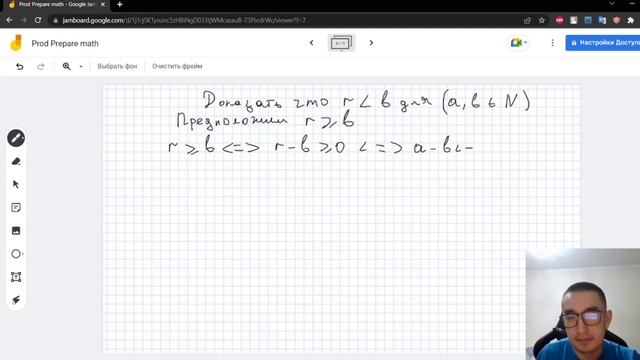 jamboard.google.com/d/1j1rjSKTysunc3zHBiNgD033tjWMcasauB-73PiedrWc/viewer?f=7
Prod Prepare math
8 / 11
Настройки Доступа
Выбрать фон
Очистить фрейм
Доказать что r < в для (a, в ∈ N)
Предположим r ≥ в
r ≥ в <=> r - в ≥ 0 <=> a - в